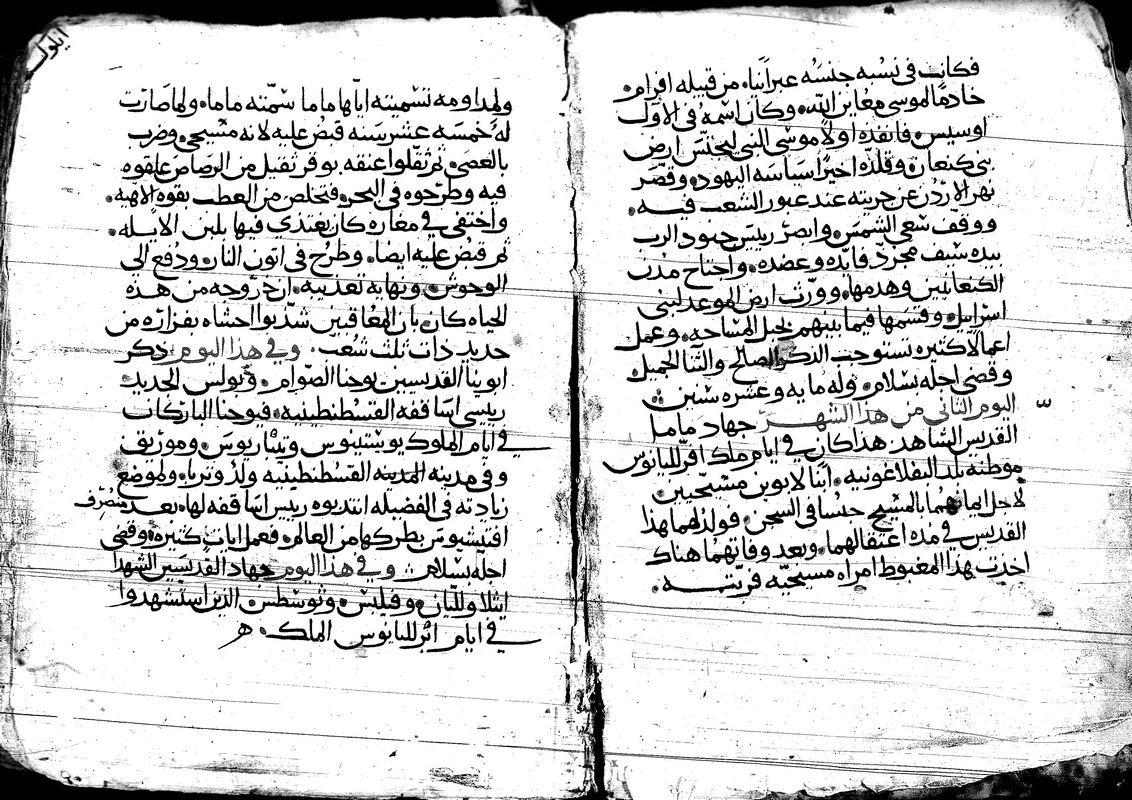 فكانت في نسبه جنسه عبرانيا. من قبيله افرام.
خادما لموسى معاين الله. وكان اسمه في الاول
اوسيس. فانفده اولا موسى النبي ليجتس ارض
بني كنعان. وقلده اخيرا سياسة اليهود. وقصر
نهر الاردن عن جريته عند عبور الشعب فيه.
ووقف سعي الشمس. وابصر رييس جنود الرب
بيده سيف مجرد. فايده وعضده. واجتاح مدن
الكنعانيين وهدمها. وورت ارض الموعد لبني
اسراييل. وقسمها فيما بينهم بحبل المساحه. وعمل
اعمالا كتيره تستوجب الذكر الصالح والتنا الجميل
وقضى اجله بسلام. وله مايه وعشره سنين
اليوم التاني من هذا الشهر جهاد ماما
القديس الشاهد. هذا كان في ايام ملك افرلليانوس
موطنه بلد البفلاغونيه. ابنا لابوين مسيحيين
لاجل ايمانهما بالمسيح حبسا في السجن. فولد لهما هذا
القديس في مده اعتقالهما. وبعد وفاتهما هناك
اخذت بهذا المغبوط امراه مسيحيه فربته.
ايلول
ولمداومه تسميته اياها ماما سمته ماما. ولما صارت
له خمسه عشر سنه قبض عليه لانه مسيحي. وضرب
بالعصي. تم تقلوا عنقه بوقر تقيل من الرصاص علقوه
فيه وطرحوه في البحر. فتخلص من العطب بقوه الاهيه.
واختفى في مغاره كان يغتذي فيها بلبن الايله.
تم قبض عليه ايضا. وطرح في اتون النار. ودفع الى
الوحوش. ونهاية تعذيبه. ان خروجه من هذه
الحياه كان. بان المعاقبين شذبوا احشاه بفزاره من
حديد ذات تلت شعب. وفي هذا اليوم ذكر
ابوينا القديسين يوحنا الصوام. وبولس الجديد
رييسي اساقفه القسطنطينيه. فيوحنا البار كان
في ايام الملوك يوستينوس وتيباريوس. وموريق
وفي مدينه المدينه القسطنطينيه ولد وتربا. ولموضع
زيادته في الفضيله انتدبوه رييس اساقفه لها. بعد منصرف
افتيشيوس بطركها من العالم. فعمل ايات كتيره. وقضى
اجله بسلام. وفي هذا اليوم جهاد القديسين الشهدا
وفيلبس. وتوسطس الذين استشهدوا
في ايام الملك.